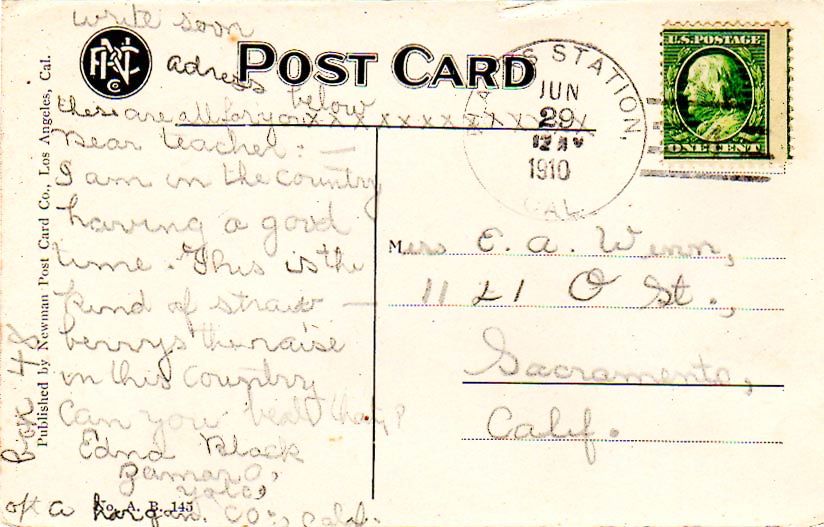 write soon
adress
below
POST CARD
these are all for you x x x x x x x x x x x x x
Dear teacher: —
I am in the country
having a good
time. This is the
kind of straw —
berrys the raise
in this country
Can you beat that?
Edna Black
Zamaro,
Yolo,
Co., Calif.
Box 48
No. A. B. 145
Published by Newman Post Card Co., Los Angeles, Cal.
STATION,
JUN
29
1910
CAL.
U.S. POSTAGE
ONE CENT
Miss E. A. Winn,
1121 O St.,
Sacramento,
Calif.